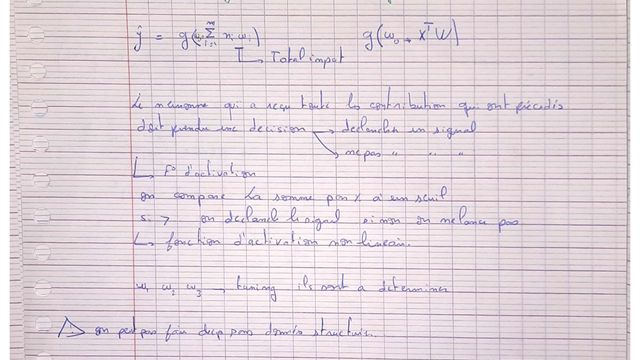 ŷ = g(w₀ Σ xᵢ wᵢ) g(w₀ + XᵀW)
Total input
Le neuronne qui a reçu toute les contribution qui ont précédés
doit prendre une decision → declancher un signal
→ ne pas " " "
↳ F° d'activation
on compare la somme par % à un seuil
si > on declanch le signal sinon on ne lance pas
↳ fonction d'activation non lineair.
w₁ w₂ w₃ → tuning ils sont a determiner
⚠ on peut pas fair deep pour donnés structurer.